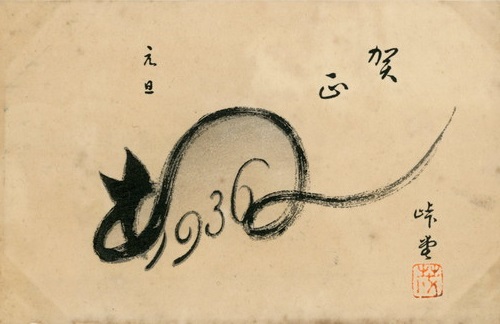 賀正
元旦
1936
峠堂